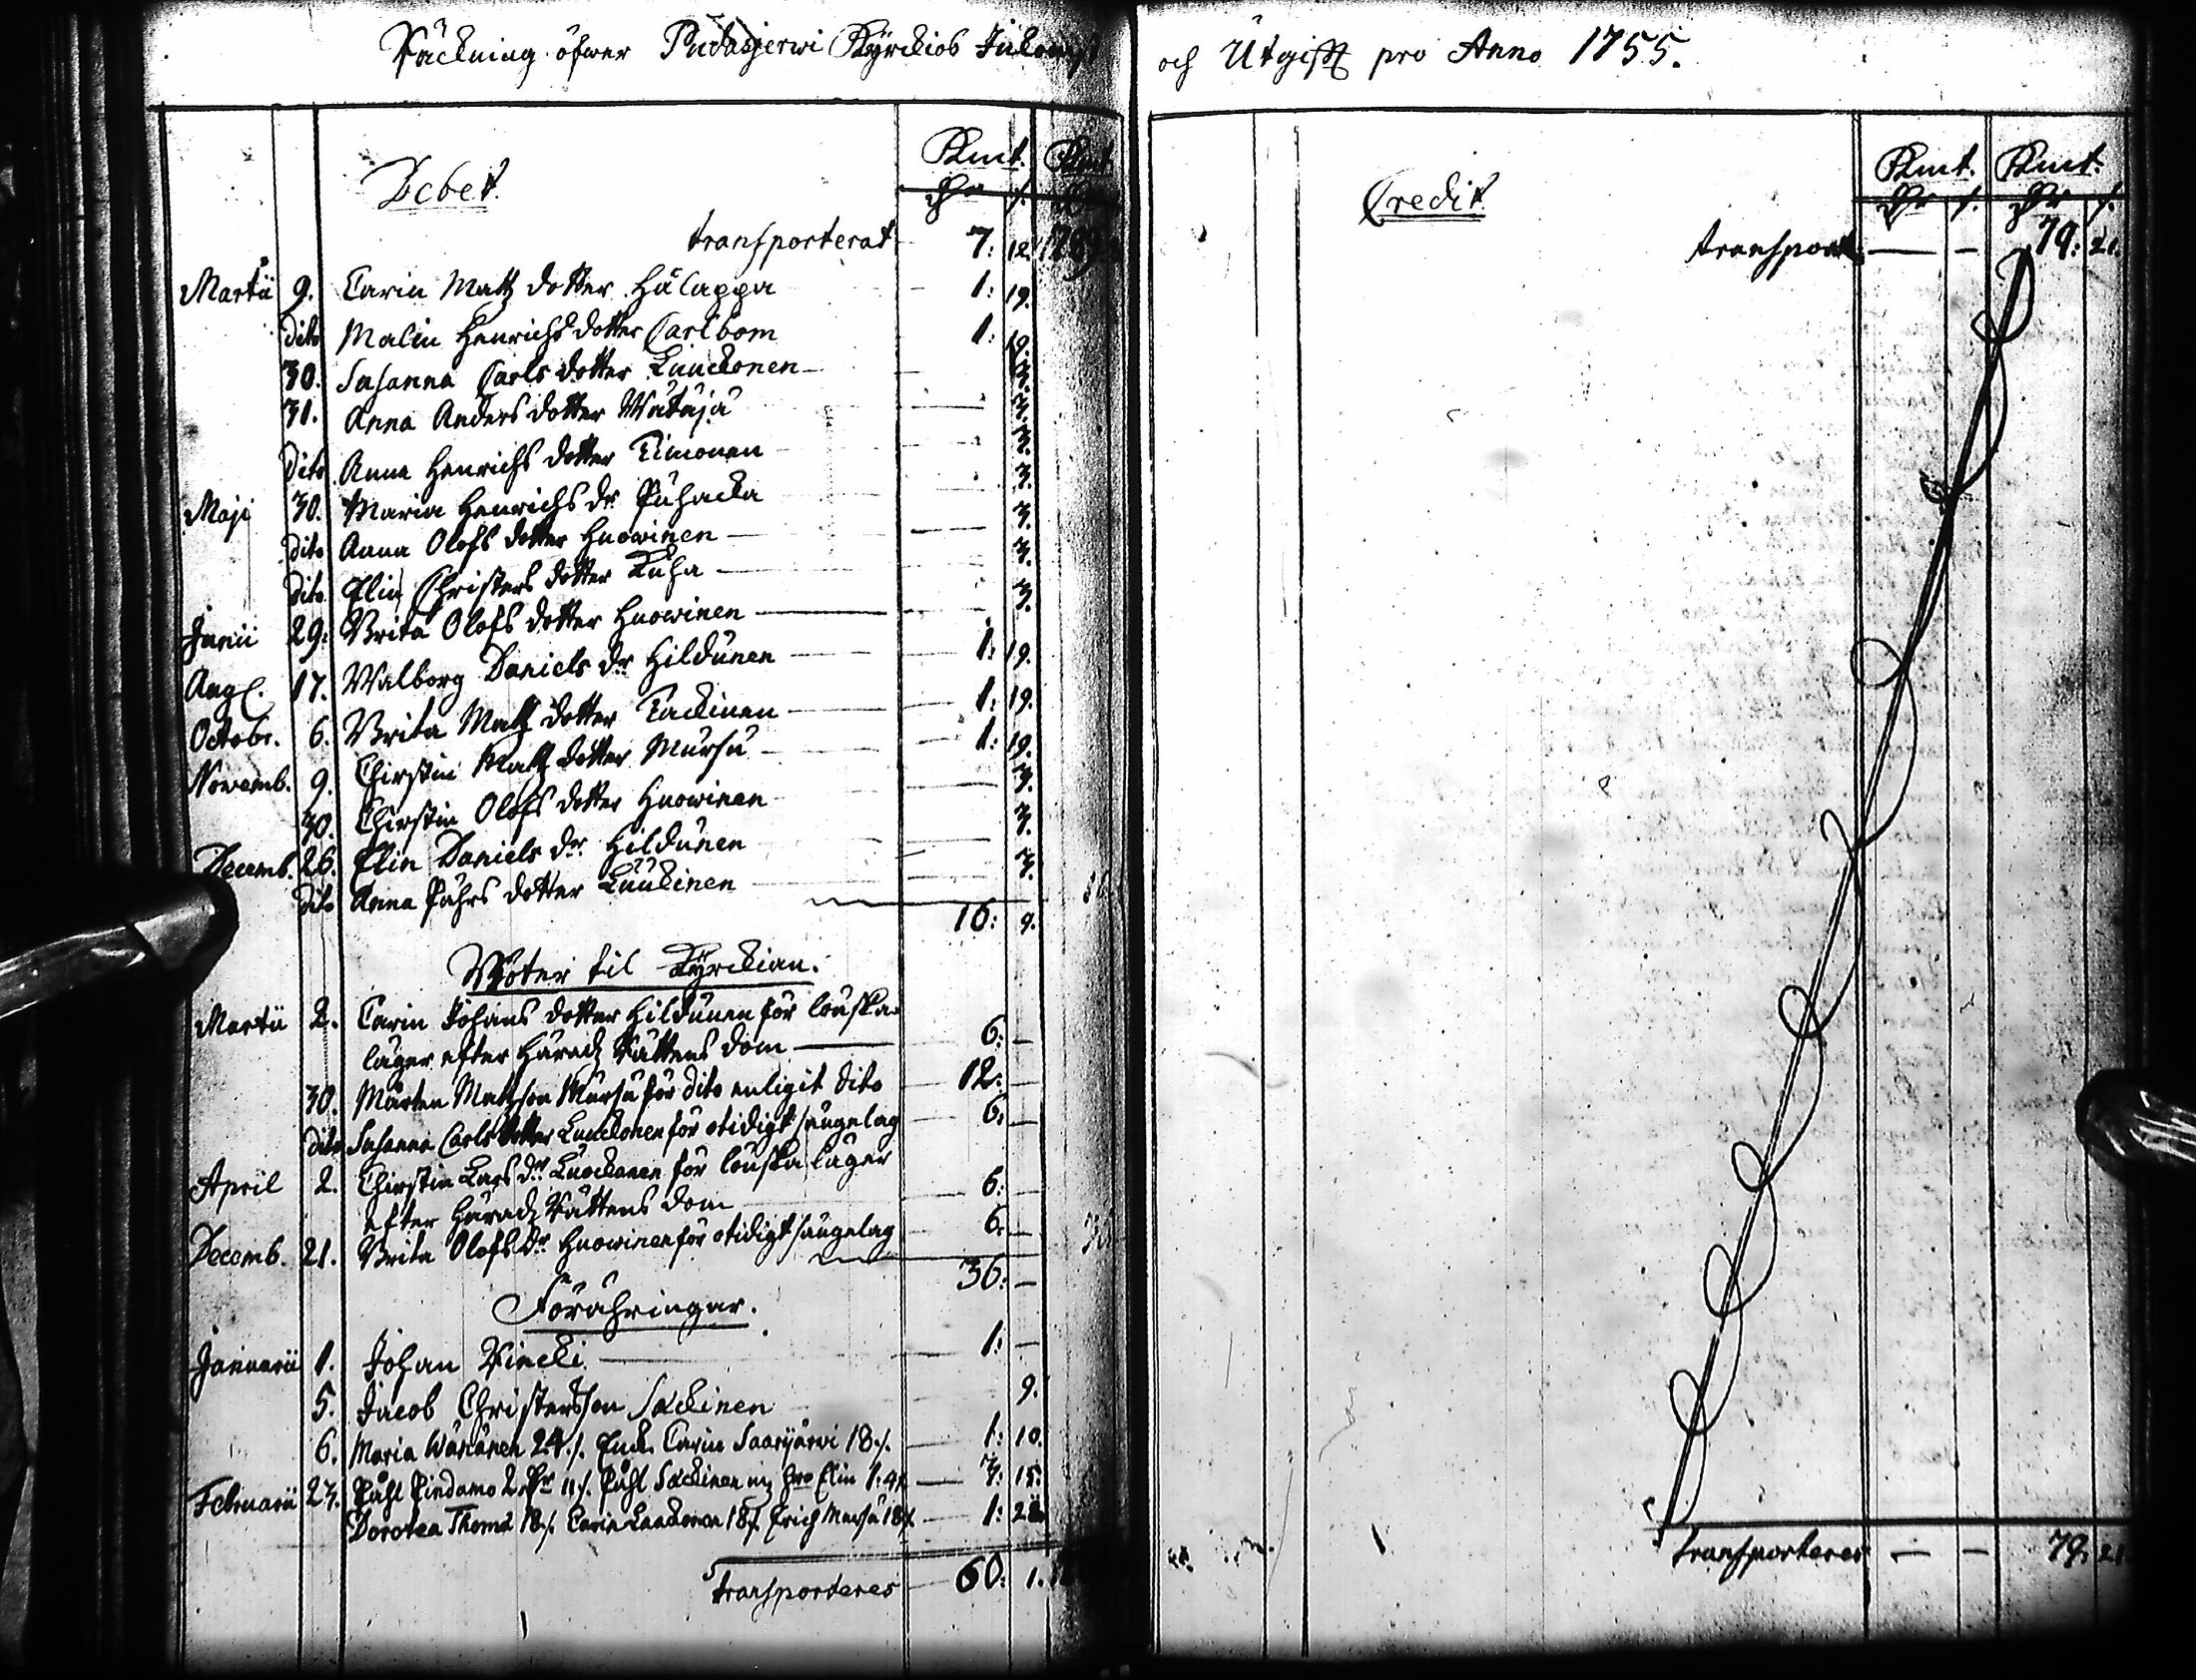 Räckning öfwer Pudasjerwi Kyrckios Inkomst
och Utgifft pro Anno 1755.
Debet.
Kmt. Kmt
transporterat 7: 12.
Martii 9. Carin Matz dotter Hälappa 1: 19.
dito Malin Henrichs dotter Carlbom 1: 19.
30. Susanna Carls dotter Luuckonen 3.
31. Anna Anders dotter Wätäjä 3.
dito Anna Henrichs dotter Timonen 3.
Maji 30. Maria Henrichs dr Puhacka 3.
dito Anna Olofs dotter Huowinen 3.
dito Elin Christers dotter Kuha 3.
Junii 29. Brita Olofs dotter Huowinen 3.
Aug. 17. Walborg Daniels dr Hildunen 1: 19.
Octobr. 6. Brita Matz dotter Tackinen 1: 19.
Novemb. 9. Chirstin Matz dotter Mursu 1: 19.
30. Chirstin Olofs dotter Huowinen 3.
Decemb. 26. Elin Daniels dr Hildunen 3.
dito Anna Påhrs dotter Luukinen 3.
16: 9.
Böter til Kyrckian.
Martii 2. Carin Johans dotter Hildunen för lönska
läger efter Härads Rättens dom 6: —
30. Mårten Matzson Mursu för dito enligit dito 12: —
dito Susanna Carls dotter Luuckonen för otidigt sängelag 6: —
April 2. Chirstin Lars dr Luockanen för lönska läger
efter Härads Rättens dom 6: —
Decemb. 21. Brita Olofs dr Huowinen för otidigt sängelag 6: —
36: —
Förähringar.
Januarii 1. Johan Rincki 1: —
5. Jacob Christersson Sackinen 9.
6. Maria Wänänen 24./. Enck. Carin Saarijärvi 18./. 1: 10.
Februarii 23. Påhl Pindamo 2 dr 11./. Påhl Sackinen 3: 15.
Dorotea Thoma 18./. Carin Laackonen 18./. Erich Mursu 18./. 1:
transporteres 60: 1.
Credit
Kmt. Kmt.
transport — — 79: 21.
transporteres — — 79: 21